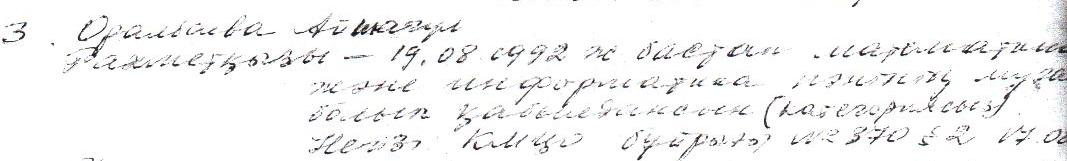 3. Оралбаева Айшагүл
Рахметқызы – 19.08.1992 ж бастап математика
және информатика пәнінің мұға
болып қабылдансын (категориясыз)
Негіз: бұйрығы № 370 § 2 17.08